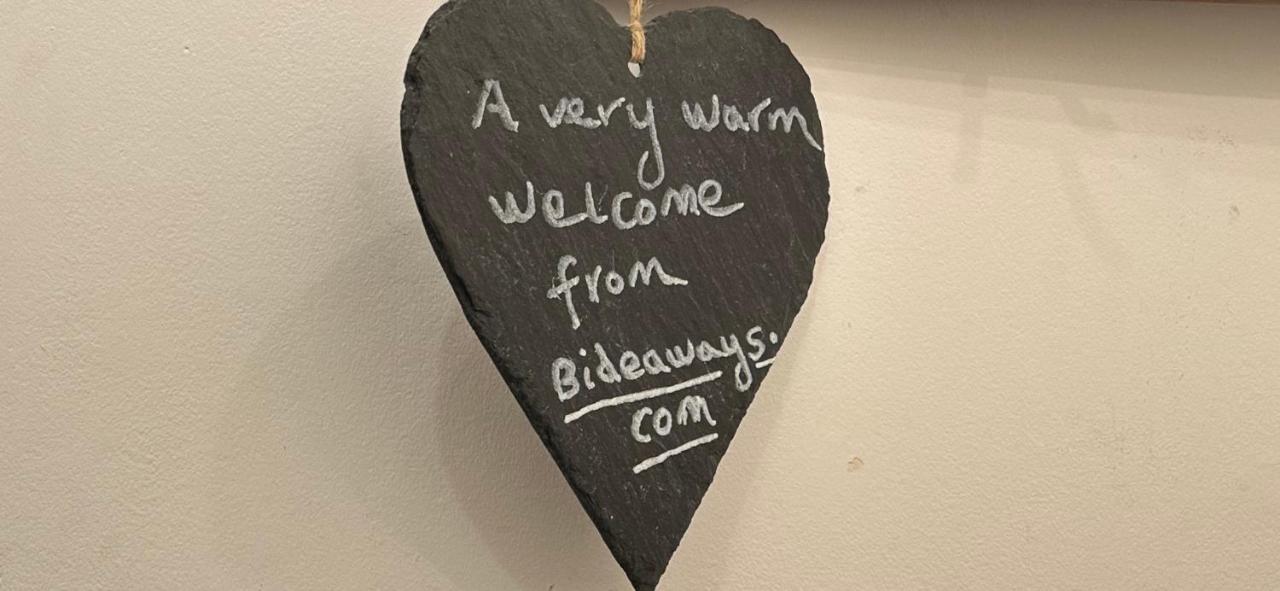 A very warm
welcome
from
Bideaways.
com